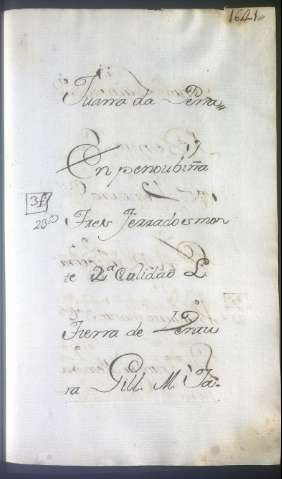 1621
Juana da Pena
En penoubiña
31
23
Tres Ferrados mon
te 2ª Calidad L
Tierra de Ventu
ra Gill. M.